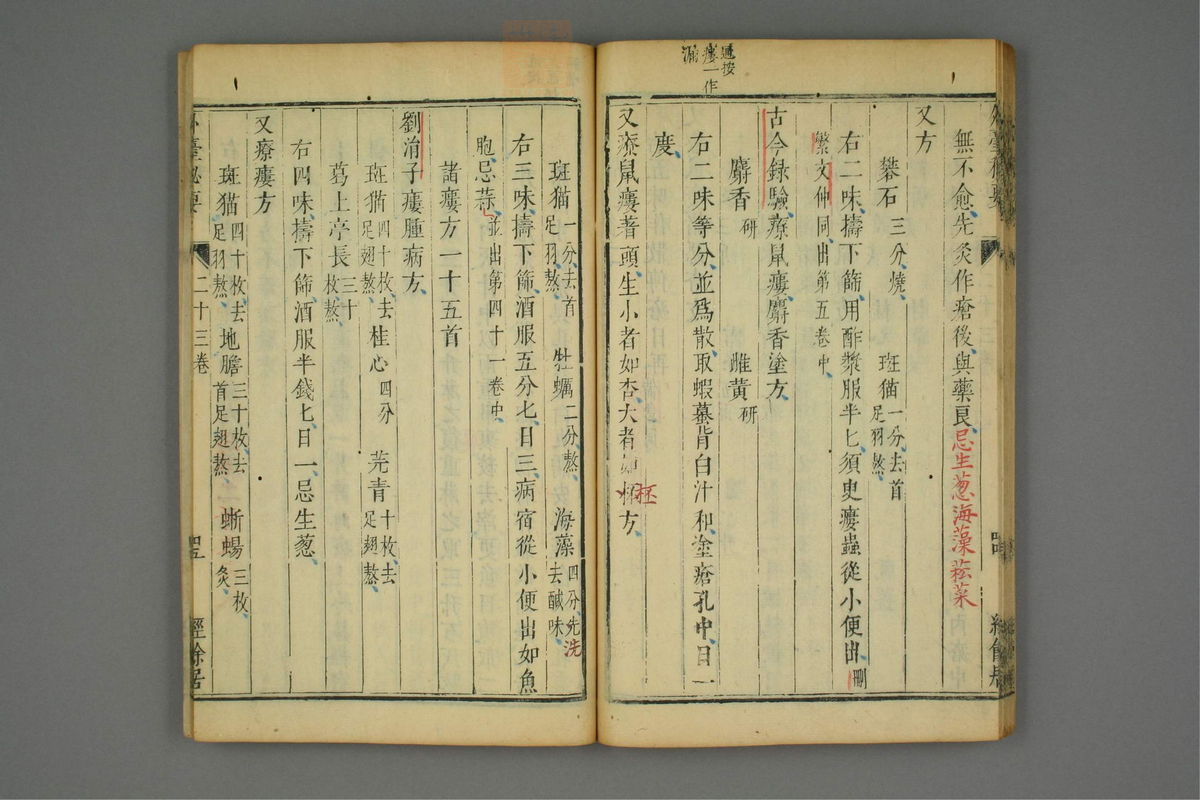 無不愈先灸作瘡後與藥良忌生葱海藻菘菜
又方
礬石三分燒 斑猫一分去首足羽熬
右二味擣下篩用酢漿服半匕須臾瘻蟲從小便出刪
繁文仲同出第五卷中
古今録驗療鼠瘻麝香塗方
麝香研 雌黃研
右二味等分並爲散取蝦蟇背白汁和塗瘡孔中日一
度
又療鼠瘻著頭生小者如杏大者如杯方
通按瘻一作漏
斑猫一分去首足羽熬 牡蠣二分熬 海藻四分先洗去醎味
右三味擣下篩酒服五分匕日三病宿從小便出如魚
胞忌蒜並出第四十一卷中
諸瘻方一十五首
劉涓子瘻腫病方
斑猫四十枚去足翅熬 桂心四分 芫青十枚去足翅熬
葛上亭長三十枚熬
右四味擣下篩酒服半錢匕日一忌生葱
又療瘻方
斑猫四十枚去足羽熬 地膽三十枚去首足翅熬 蜥蜴三枚灸
外臺祕要 二十三卷 經餘居